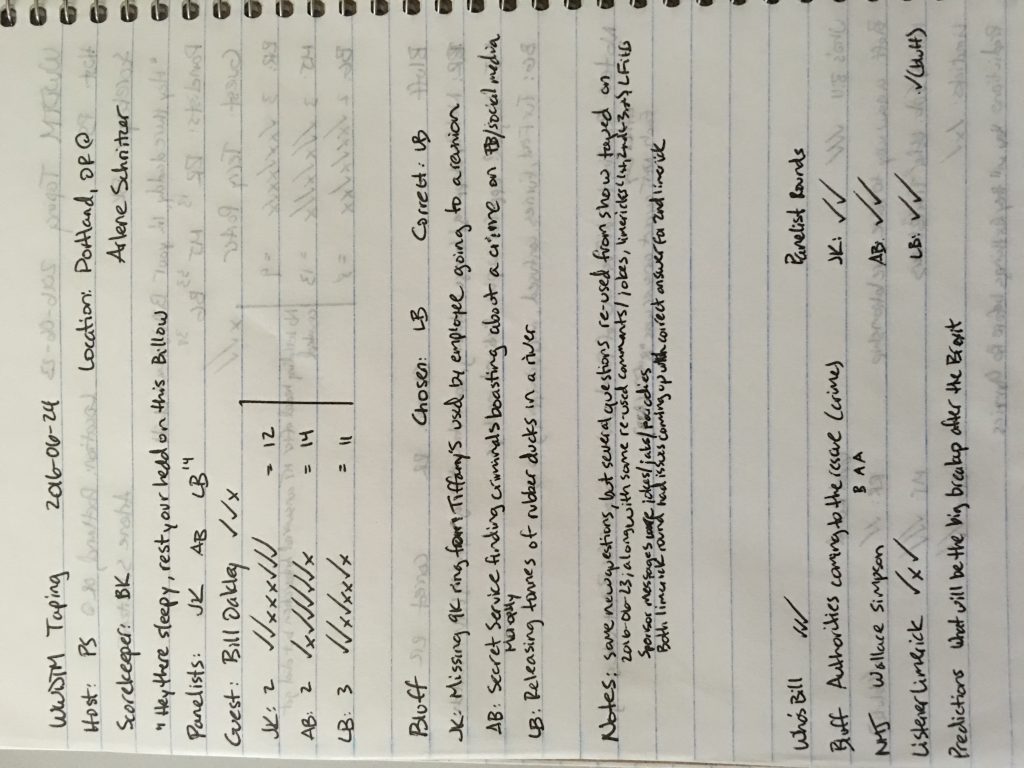 WWDTM Taping 2016-06-24
Host: PS Location: Portland, OR @
Scorekeeper: BK Arlene Schnitzer
"Hey there sleepy, rest your head on this Billow"
Panelists: JK AB LB '14
Guest: Bill Oakley ✓✓x
JK: 2 ✓✓xxx✓✓✓ = 12
AB: 2 ✓x✓✓✓✓✓x = 14
LB: 3 ✓✓✓x✓x = 11
Bluff Chosen: LB Correct: LB
JK: Missing 9K ring from Tiffany's used by employee going to a reunion
AB: Secret Service finding criminals boasting about a crime on FB/social media
LB: Releasing tonnes of rubber ducks in a river
Notes: some new questions, but several questions re-used from show taped on
2016-06-23, along with some re-used comments/jokes, limericks (1st, 2nd, 3rd) LFitB
Sponsor messages were jokes/jabs/parodies
Both limerick round had issues coming up with correct answer for 2nd limerick
Who's Bill ✓✓✓ Panelist Rounds
Bluff Authorities coming to the rescue (crimes) JK: ✓✓
B A A
NMJ Wallace Simpson AB: ✓✓
Listener Limerick ✓x✓ LB: ✓✓ ✓(Bluff)
Predictions What will be the big breakup after the Brexit